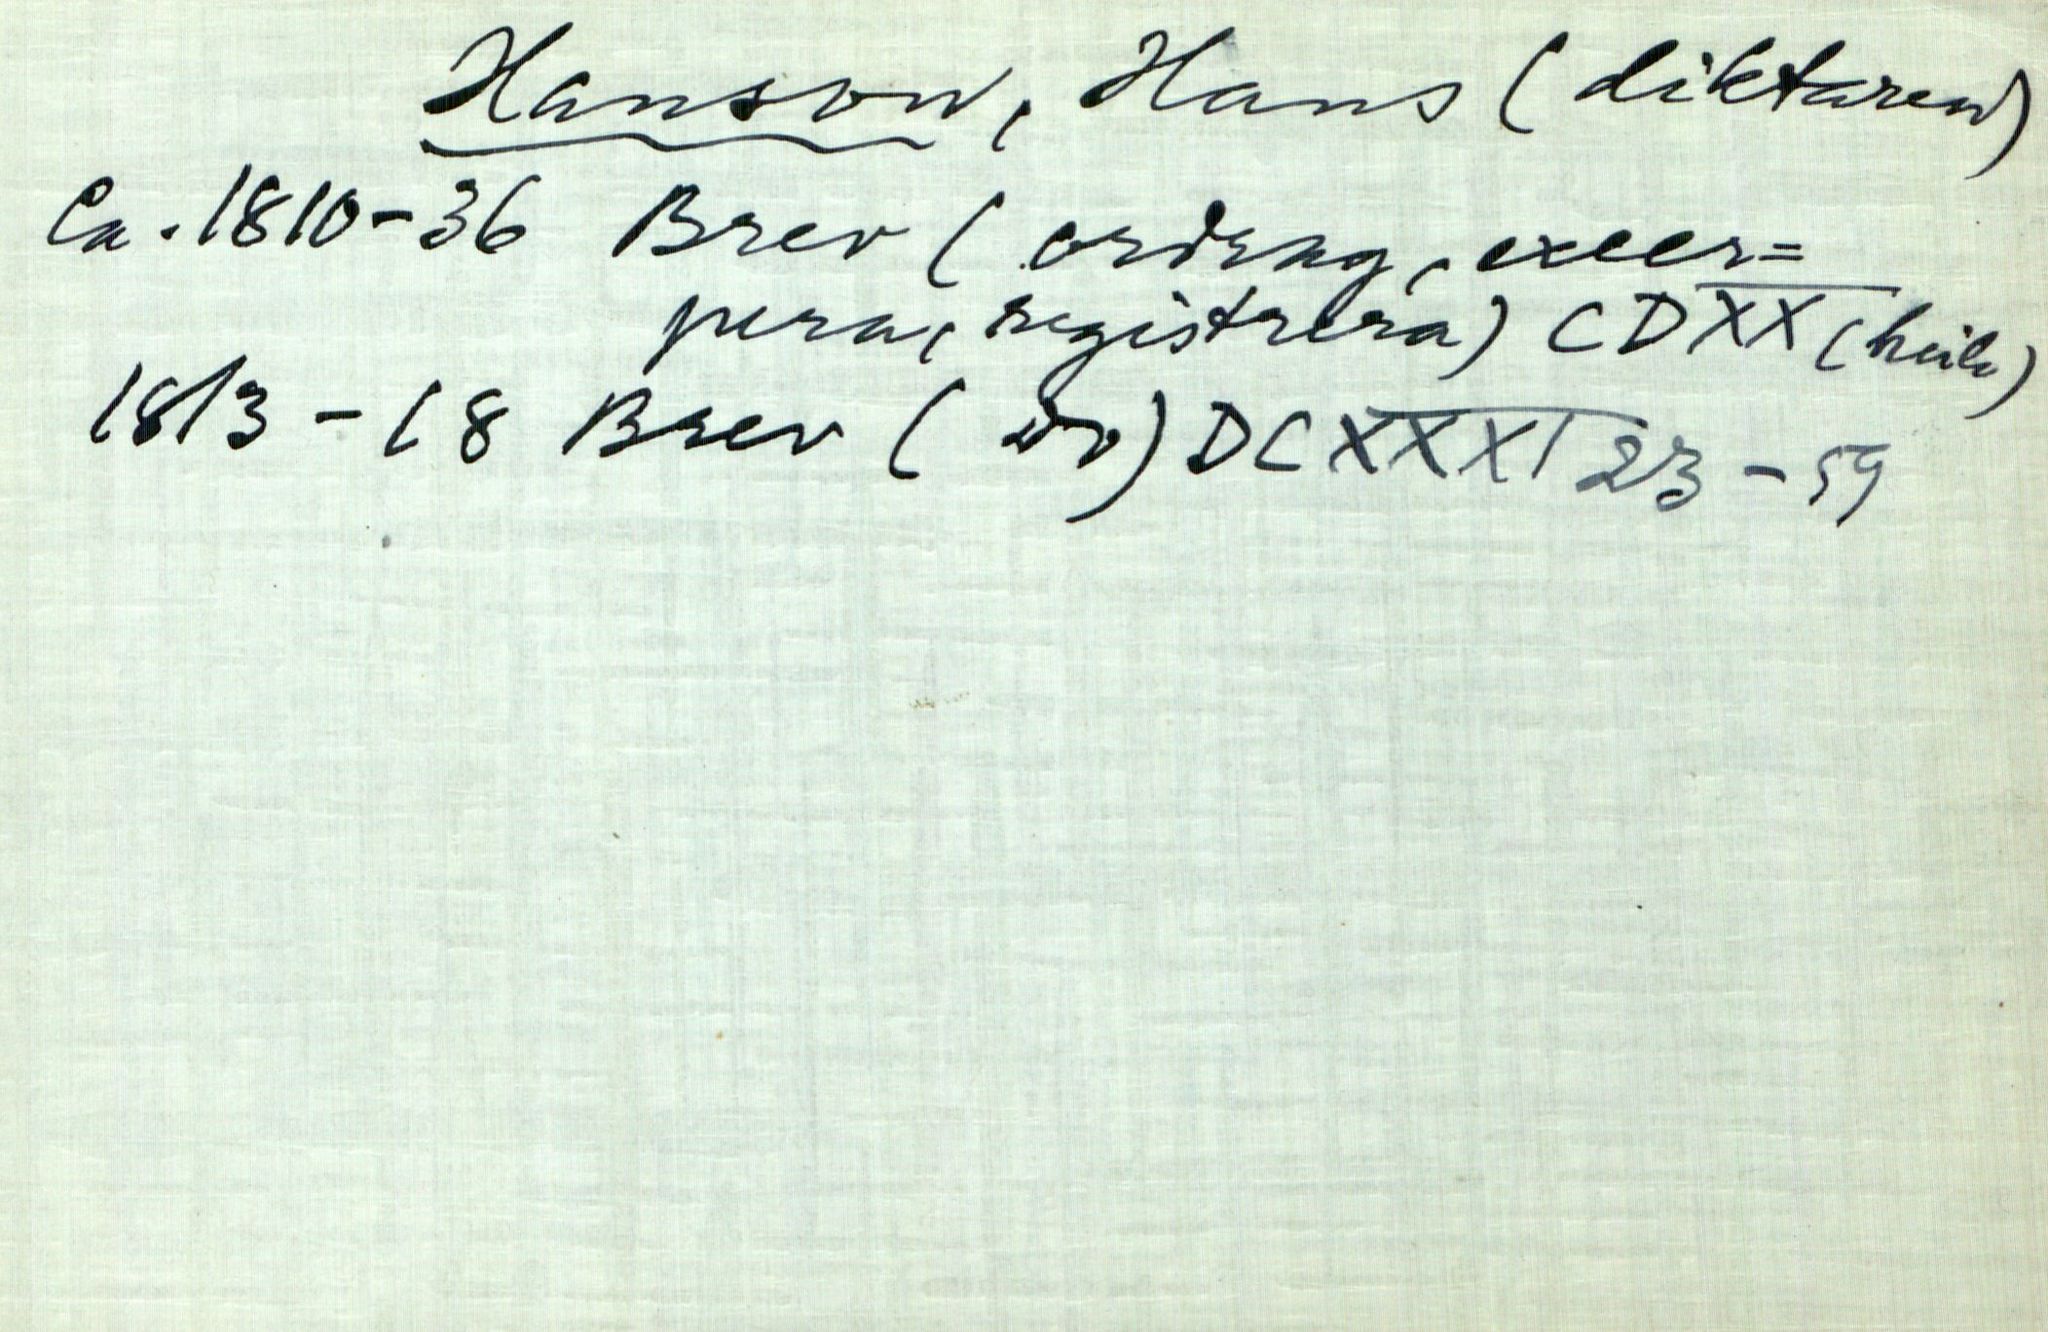 Hanson, Hans (diktaren)
Ca. 1810-36 Brev (ordng, excer=
pera, registrera) CDXX (hela)
1813-18 Brev (Do) DCXXXI 23-59